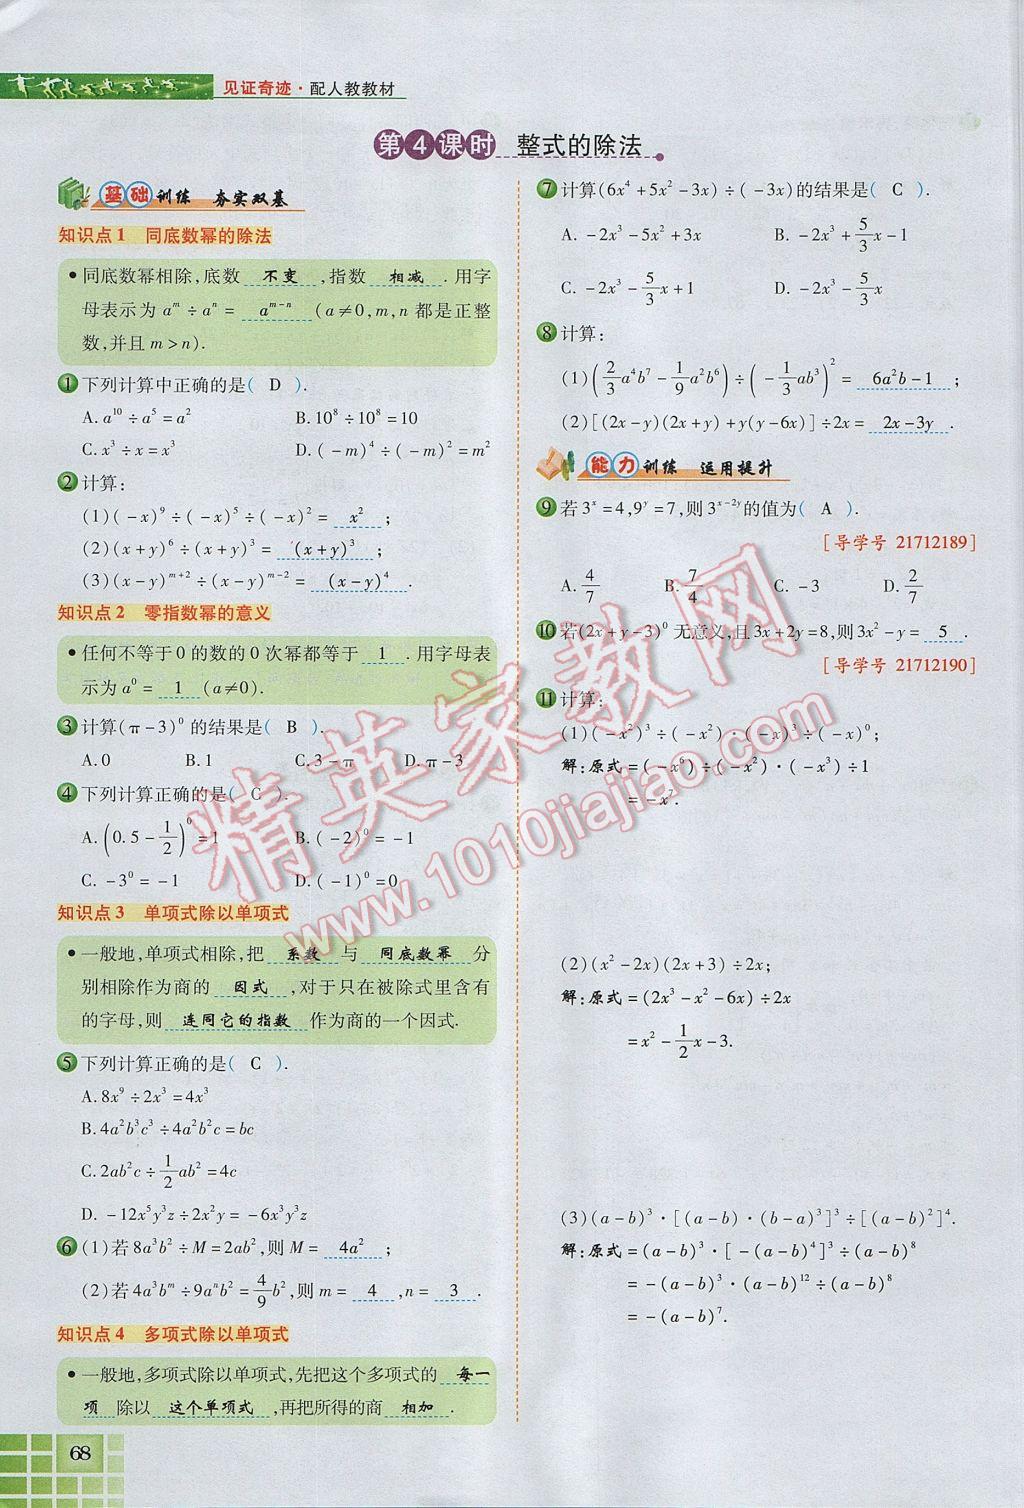 见证奇迹·配人教教材
第4课时 整式的除法
基础训练 夯实双基
知识点1 同底数幂的除法
●同底数幂相除,底数 不变 ,指数 相减 .用字
母表示为 a^m÷a^n= a^{m-n} (a≠0,m,n 都是正整
数,并且 m>n).
1 下列计算中正确的是( D ).
A. a^10÷a^5=a^2 B. 10^8÷10^8=10
C. x^3÷x=x^3 D. (-m)^4÷(-m)^2=m^2
2 计算:
(1)(-x)^9÷(-x)^5÷(-x)^2= x^2 ;
(2)(x+y)^6÷(x+y)^3= (x+y)^3 ;
(3)(x-y)^{m+2}÷(x-y)^{m-2}= (x-y)^4 .
知识点2 零指数幂的意义
●任何不等于0的数的0次幂都等于 1 .用字母表
示为 a^0= 1 (a≠0).
3 计算(π-3)^0 的结果是( B ).
A. 0 B. 1 C. 3-π D. π-3
4 下列计算正确的是( C ).
A. (0.5-1/2)^0=1 B. (-2)^0=-1
C. -3^0=-1 D. (-1)^0=0
知识点3 单项式除以单项式
●一般地,单项式相除,把 系数 与 同底数幂 分
别相除作为商的 因式 ,对于只在被除式里含有
的字母,则 连同它的指数 作为商的一个因式.
5 下列计算正确的是( C ).
A. 8x^9÷2x^3=4x^3
B. 4a^2b^3c^3÷4a^2b^2c=bc
C. 2ab^2c÷1/2ab^2=4c
D. -12x^5y^3z÷2x^2y=-6x^3y^3z
6 (1)若8a^3b^2÷M=2ab^2,则M= 4a^2 ;
(2)若4a^3b^m÷9a^nb^2=4/9b^2,则m= 4 ,n= 3 .
知识点4 多项式除以单项式
●一般地,多项式除以单项式,先把这个多项式的 每一
项 除以 这个单项式 ,再把所得的商 相加 .
68
7 计算(6x^4+5x^2-3x)÷(-3x)的结果是( C ).
A. -2x^3-5x^2+3x B. -2x^3+5/3x-1
C. -2x^3-5/3x+1 D. -2x^3-5/3x
8 计算:
(1)(2/3a^4b^7-1/9a^2b^6)÷(-1/3ab^3)^2= 6a^2b-1 ;
(2)[(2x-y)(2x+y)+y(y-6x)]÷2x= 2x-3y .
能力训练 运用提升
9 若3^x=4,9^y=7,则3^{x-2y}的值为( A ).
[导学号 21712189]
A. 4/7 B. 7/4 C. -3 D. 2/7
10 若(2x+y-3)^0 无意义,且3x+2y=8,则3x^2-y= 5 .
[导学号 21712190]
11 计算:
(1)(-x^2)^3÷(-x^2)·(-x)^3÷(-x)^0;
解:原式=(-x^6)÷(-x^2)·(-x^3)÷1
=-x^7.
(2)(x^2-2x)(2x+3)÷2x;
解:原式=(2x^3-x^2-6x)÷2x
=x^2-1/2x-3.
(3)(a-b)^3·[(a-b)·(b-a)^3]^3÷[(a-b)^2]^4.
解:原式=(a-b)^3·[-(a-b)^4]^3÷(a-b)^8
=-(a-b)^3·(a-b)^12÷(a-b)^8
=-(a-b)^7.
精英家教网
www.1010jiajiao.com